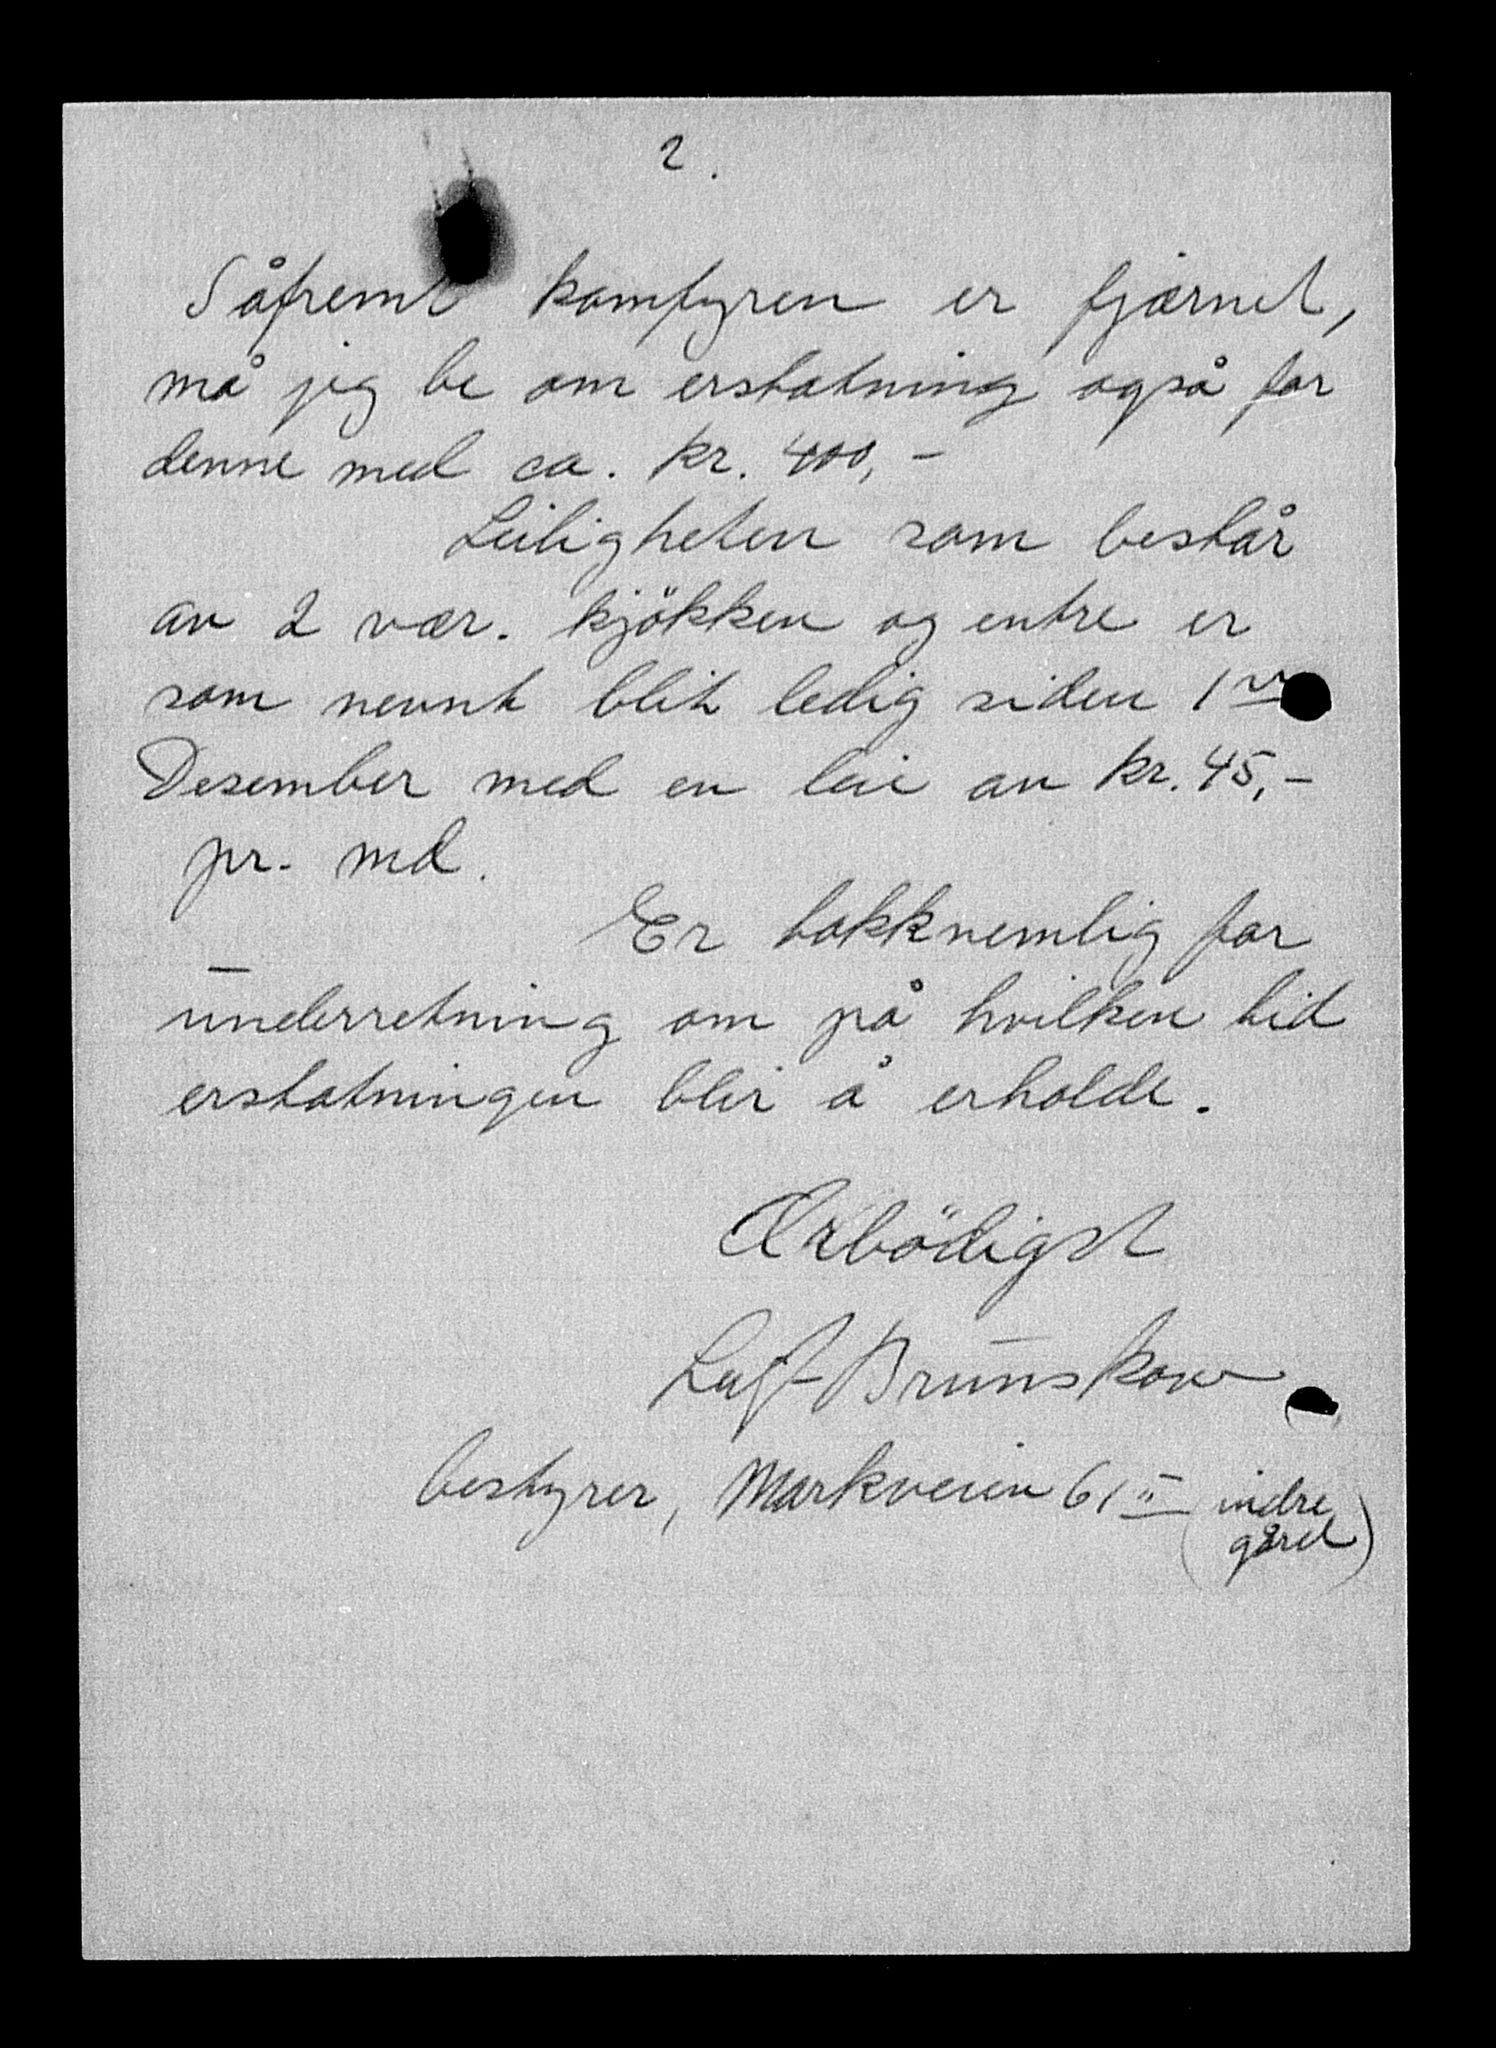 2.
Såfremt komfyren er fjærnet,
må jeg be om erstatning også for
denne med ca. kr. 400,-
Leiligheten som består
av 2 vær. kjökken og entre er
som nevnt blit ledig siden 1
Desember med en leie av kr. 45,-
pr. md.
Er takknemlig for
underretning om på hvilken tid
erstatningen blir å erholde.
Ærbödigst
Leif Brunskow
bestyrer, Markveien 61 II (indre
gård)